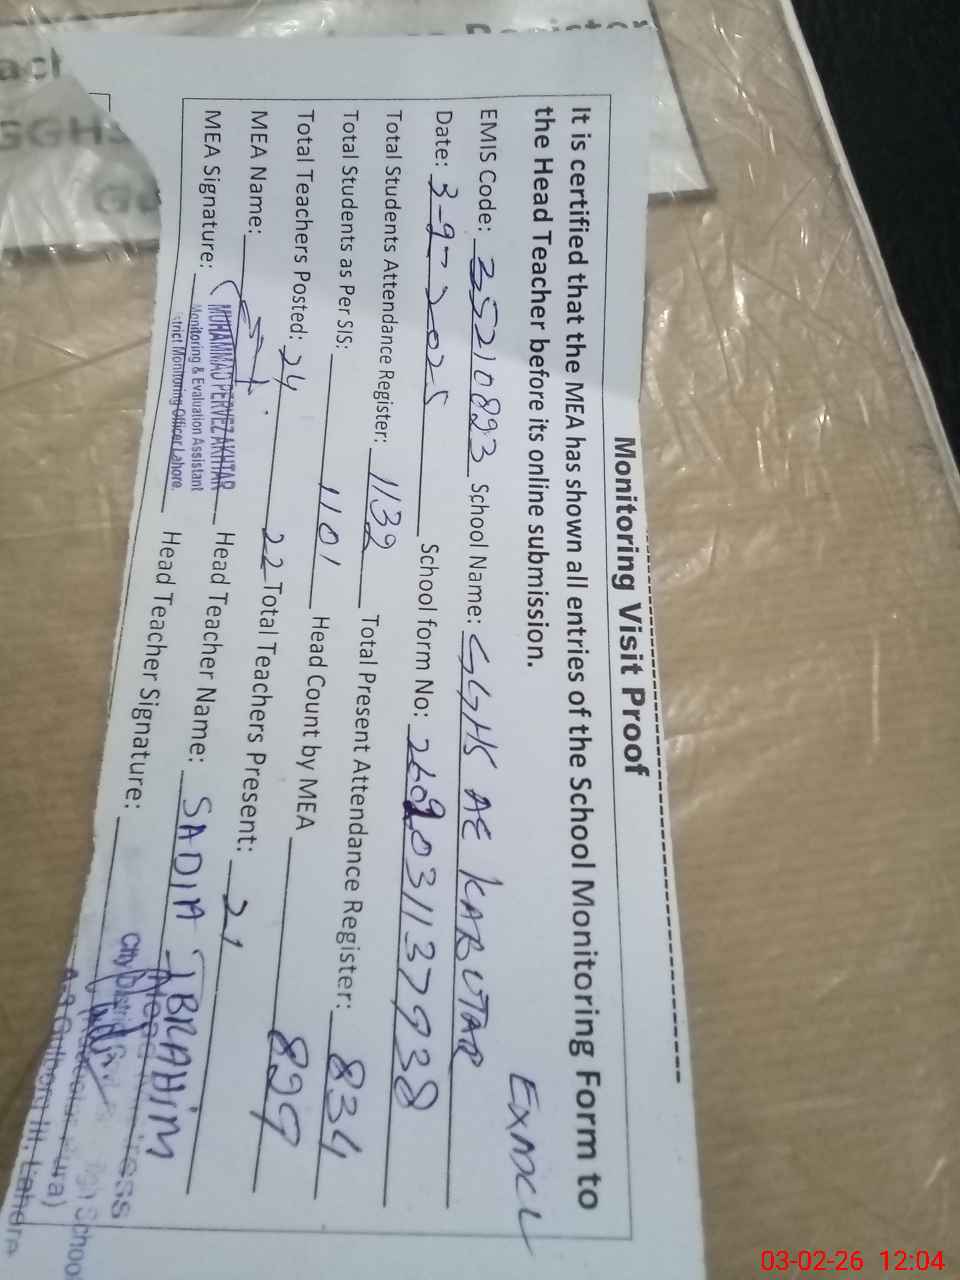 Monitoring Visit Proof
It is certified that the MEA has shown all entries of the School Monitoring Form to
the Head Teacher before its online submission.
EMIS Code: 35210893 School Name: GGHS AE KABUTAR
Date: 3-9-2025 School form No:
Total Students Attendance Register: 1132 Total Present Attendance Register: 834
Total Students as Per SIS: 1101 Head Count by MEA 829
Total Teachers Posted: 24 22 Total Teachers Present: 21
MEA Name: MUHAMMAD PERVEZ AKHTAR Head Teacher Name: SADIA IBRAHIM
Monitoring & Evaluation Assistant
strict Monitoring Officer Lahore.
MEA Signature: Head Teacher Signature:
City District
School
Gulberg III, Lahore
03-02-26 12:04